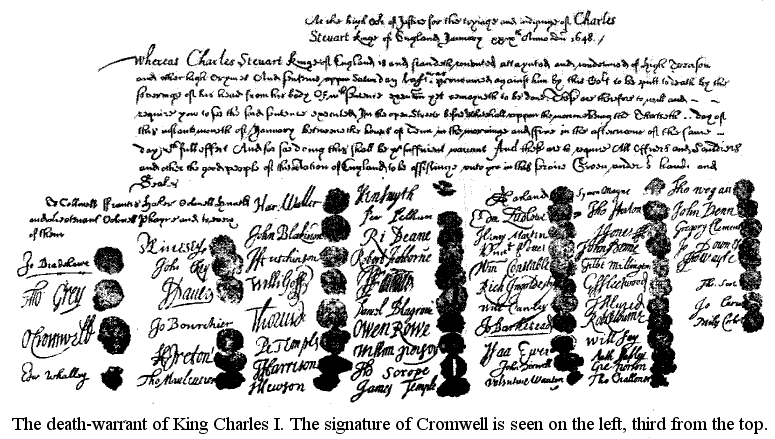 At the high Cort of Justice for the tryinge and iudginge of Charles
Steuart kinge of England January xxixth Anno Dni 1648./
Whereas Charles Steuart kinge of England is and standeth convicted attaynted and condemned of High Treason
and other high Crymes And sentence uppon Saturday last was pronounced against him by this Cort to be putt to death by the
severinge of his head from his body Of wch sentence execucon yet remayneth to be done These are therefore to will and
require you to see the said sentence executed In the open Streete before Whitehall uppon the morrowe being the Thirtieth day of
this instante moneth of January betweene the houres of Tenn in the morninge and Five in the afternoone of the same
day wth full effect And for soe doing this shall be yor sufficient warrant And these are to require All Officers and Souldiers
and other the good people of this Nation of England to be assistinge unto you in this service Given under or hands and
Seales
To Collonell Francis Hacker Colonell Huncks
and Lieutenant Colonell Phayre and to every
of them
Jo Bradshawe
Tho Grey
O Cromwell
Edw Whalley
M Livesey
John Okey
J Danvers
Jo Bourchier
H Ireton
Tho Mauleverer
Har Waller
John Blakiston
J Hutchinson
Willi Goff
Tho Pride
Pe Temple
T Harrison
J Hewson
Hen Smyth
Per Pelham
Ri Deane
Robert Tichborne
H Edwardes
Daniel Blagrave
Owen Rowe
William Purefoy
Ad Scrope
James Temple
A Garland
Edm Ludlowe
Henry Marten
Vinct Potter
Wm Constable
Rich Ingoldesby
Will Cawley
Jo Barkstead
Isaa Ewer
John Dixwell
Valentine Wauton
Symon Mayne
Tho Horton
J Jones
John Moore
Gilbt Millington
G Fleetwood
J Alured
Robt Lilburne
Will Say
Anth Stapley
Gre Norton
Tho Challoner
Tho Wogan
John Venn
Gregory Clement
Jo Downes
Tho Wayte
Tho Scot
Jo Carew
Miles Corbet
The death-warrant of King Charles I. The signature of Cromwell is seen on the left, third from the top.